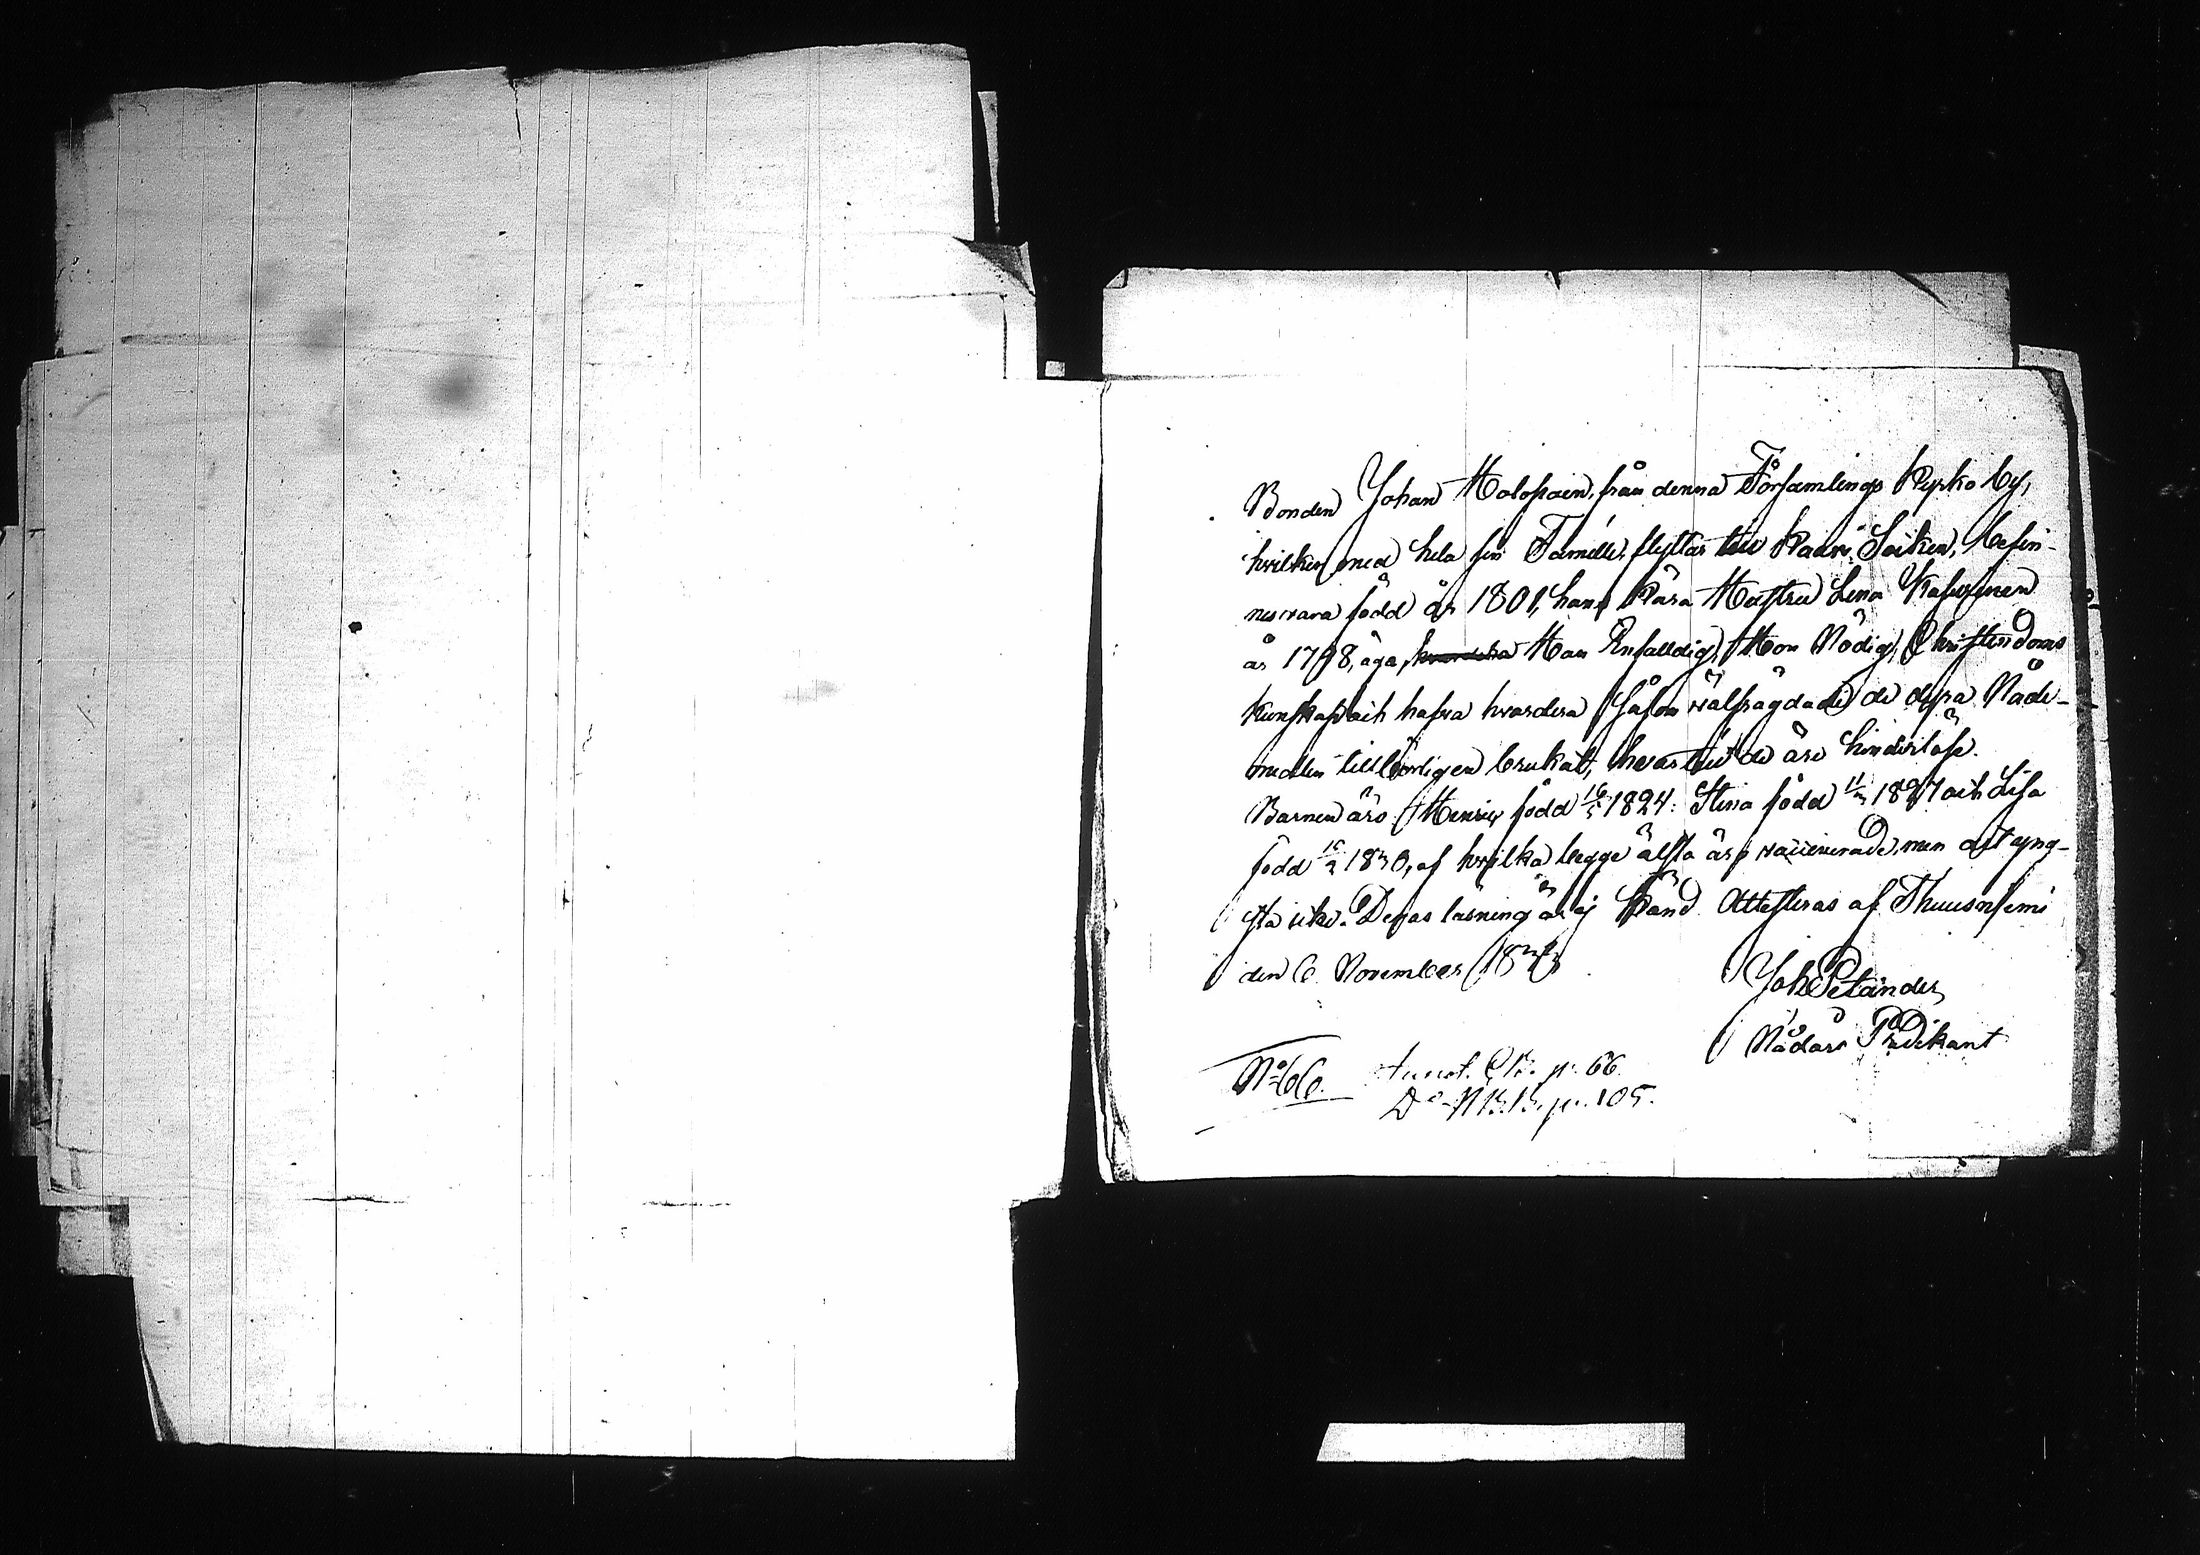 Bonden Johan Holopain, från denna Församlings Kyrko by,
hvilken med hela sin Famille, flyttar till Kaavi Socken, befin-
nes vara född år 1801, hans kära Hustru Lena
år 1798, äga, Han Enfalldig, Hon Nödig, Christendoms
kunskap och hafva hvardera såsom välfrägdade de dyra Nåde-
medlen tillbörligen brukat, hvartill de äro hinderlöse.
Barnen äro Henric född 1824. Stina född 1827 och Lisa
född 1830, af hvilka begge älsta äro vaccinerade, men det yng-
sta icke. Deras läsning är ej känd. Attesteras af Thuusniemi
den 6 November 1833
Joh Petander
Nådårs Predikant
No 66. Annot. C.B. p. 66.
Do N.K.B. p. 105.